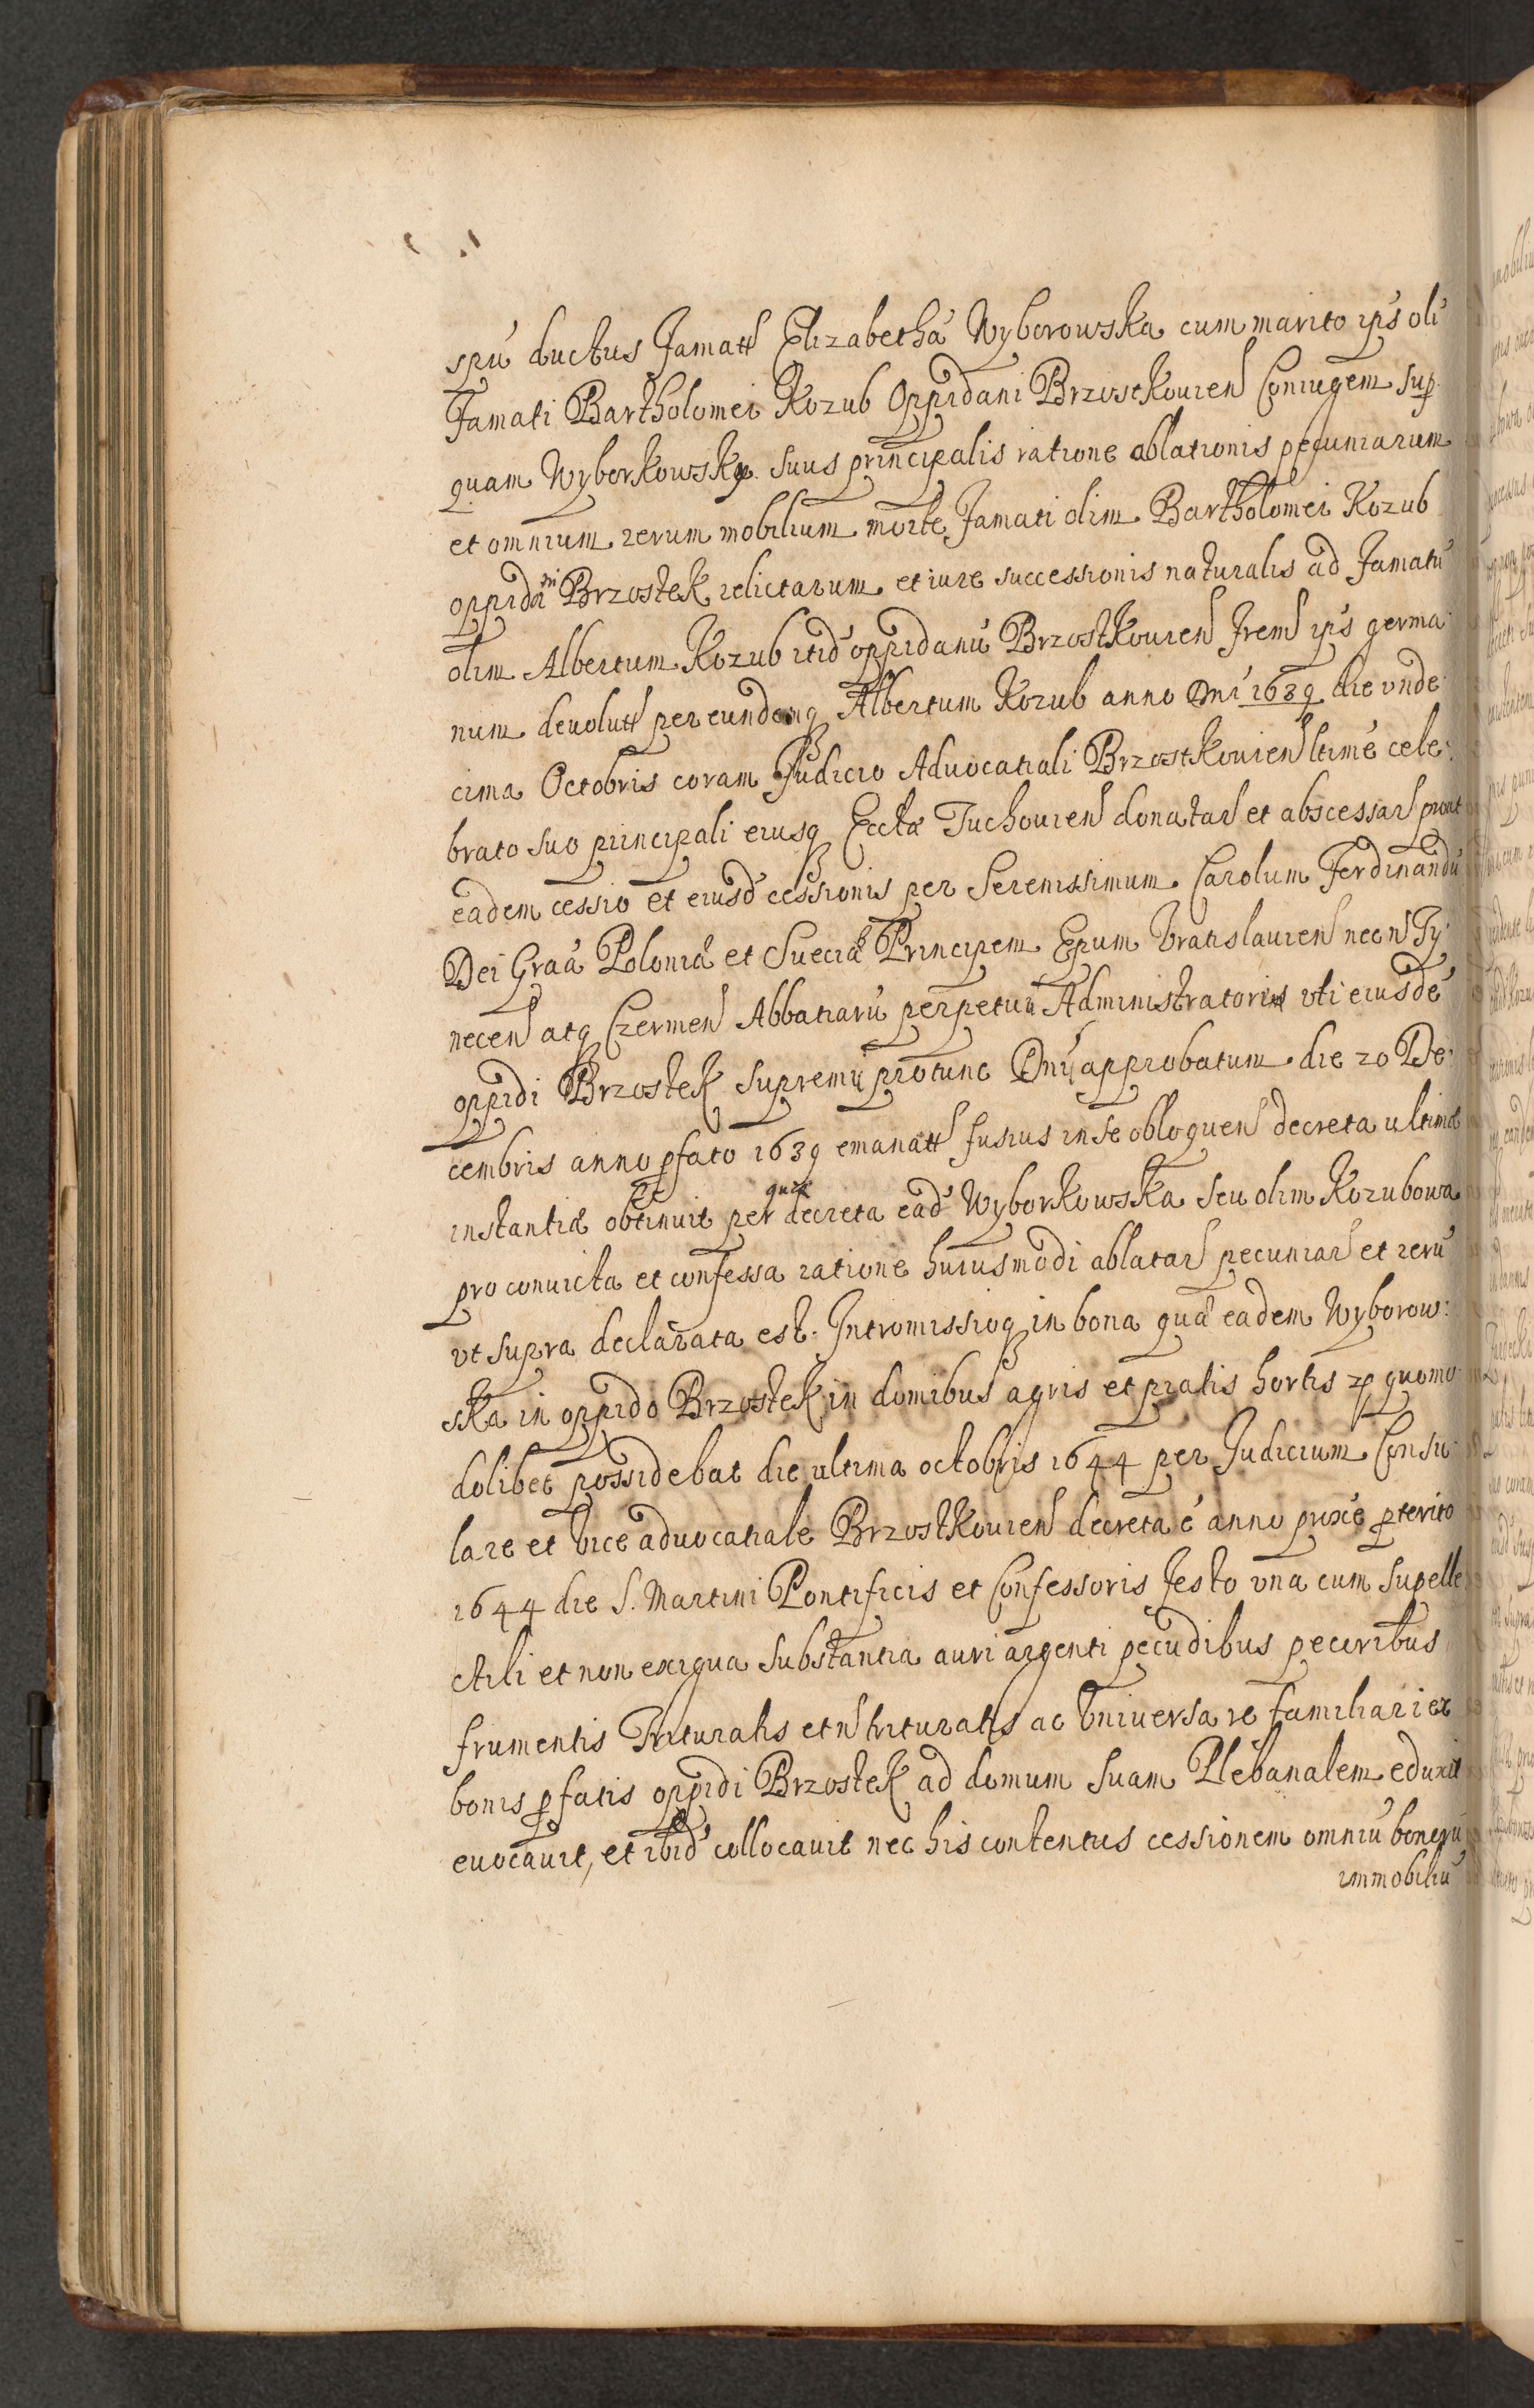 spũ ductus Famatt Elizabethã Wyborowska cum marito ips oli
Famati Bartholomei Kozub Oppidani Brzostkouien Coniugem sup
quam Wyborkowsky suus principalis ratione ablationis pecuniarum
et omnium rerum mobilium morte Famati olim Bartholomei Kozub
oppidani Brzostek relictarum et iure successionis naturalis ad Famatũ
olim Albertum Kozub itid oppidanũ Brzostkouien frem ips germa
num deuolutt per eundemq Albertum Kozub anno Dni 1639 die vnde
cima Octobris coram Judicio Aduocatiali Brzostkouien ltime cele:
brato suo principali eiusq Eccta Tuchouien donatar et abscessar prout
eadem cessio et eiusd cessionis per Serenissimum Carolum Ferdinandũ
Dei Graã Poloniæ et Sueciæ Principem Epum Vratislauien necn Ty
necen atq Czermen Abbatiarũ perpetuũ Administratoris vti eiusdẽ
oppidi Brzostek supremij protunc Dnij approbatum die 20 De
cembris anno pfato 1639 emanatt fusius in se obloquen decreta ultimæ
instantiæ obtinuit per quæ decreta ead Wyborkowska seu olim Kozubowa
pro conuicta et confessa ratione huiusmodi ablatar pecuniar et rerũ
vt supra declarata est. Intromissioq in bona quæ eadem Wyborow:
ska in oppido Brzostek in domibus agris et pratis hortis zp quomo
dolibet possidebat die ultima octobris 1644 per Judicium Consu
lare et Vice aduocatiale Brzostkouien decreta ẽ anno proxẽ pterito
1644 die S. Martini Pontificis et Confessoris festo vna cum supelle
ctili et non exigua substantia auri argenti pecudibus pecoribus
frumentis Trituratis et n trituratis ac Vniuersa re familiari ex
bonis pfatis oppidi Brzostek ad domum suam Plebanalem eduxit
euocauit, et ibid collocauit nec his contentus cessionem omniũ bonorũ
immobiliũ